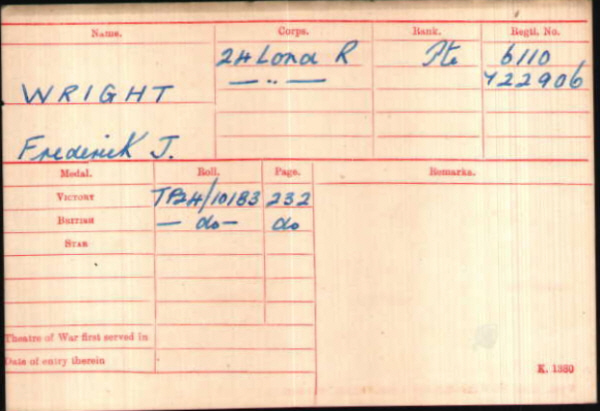 Name. Corps. Rank. Regtl. No.
24 Lond R Pte 6110
— " — 722906
WRIGHT
Frederick J.
Medal. Roll. Page. Remarks.
VICTORY TP24/101B3 232
BRITISH — do — do
STAR
Theatre of War first served in
Date of entry therein
K. 1380